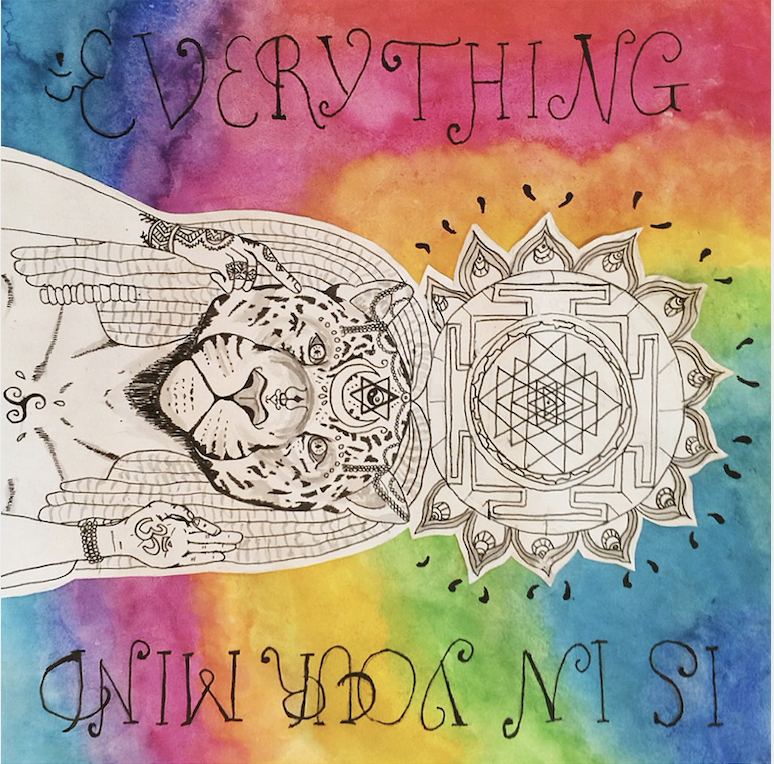 EVERYTHING
ॐ
IS IN YOUR MIND